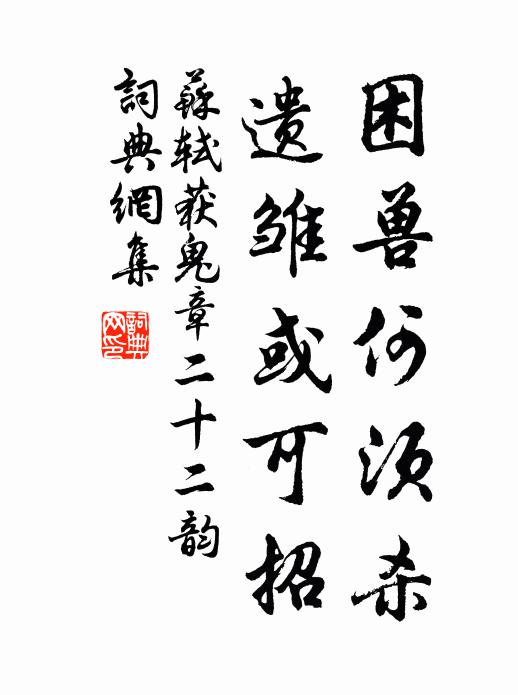 困兽何须杀
遗雏或可招
蘇軾获鬼章二十二韵
詞典網集
詞典
网印